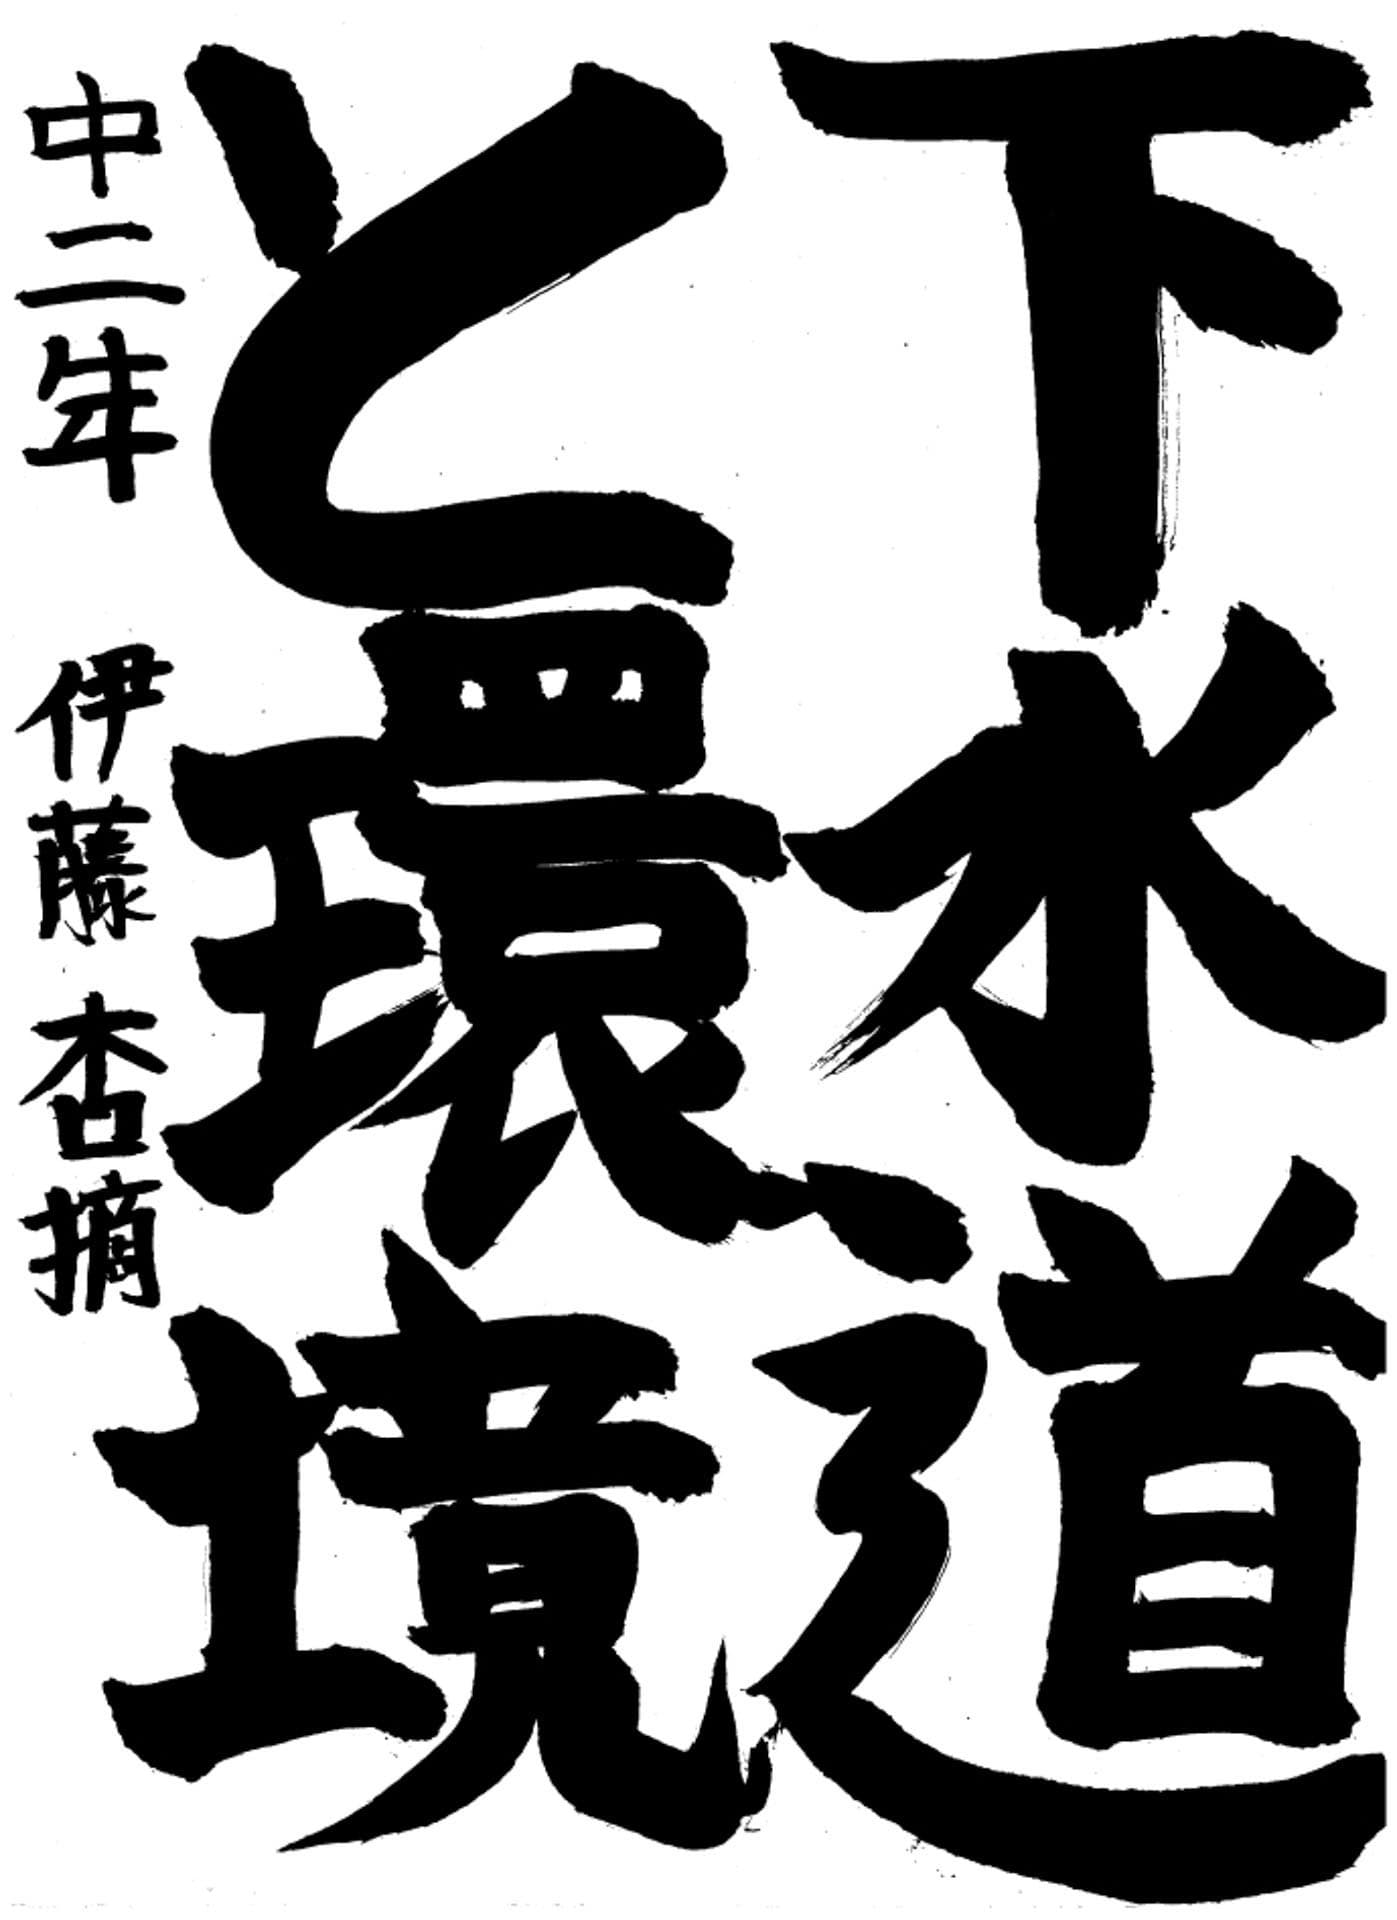 下水道
と環境
中二年 伊藤杏摘